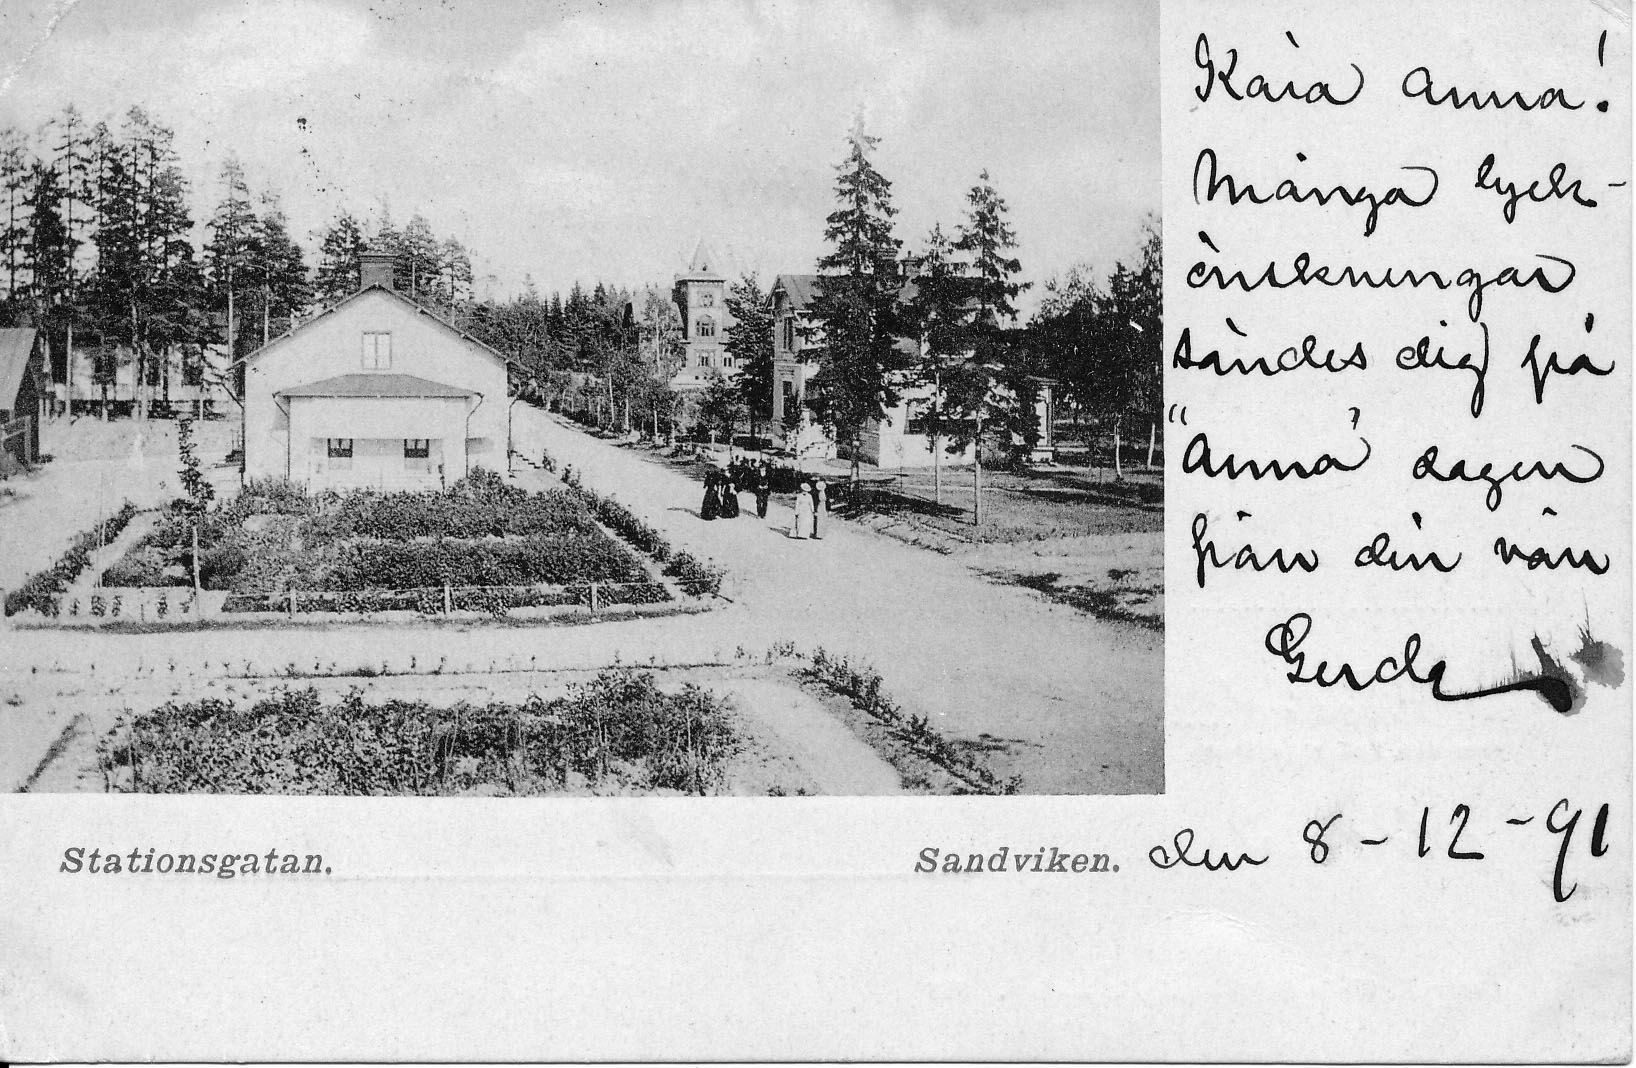 Kära Anna!
Många lyck-
önskningar
sändes dig på
"Anna" dagen
från din vän
Gerda
den 8-12-91
Stationsgatan.
Sandviken.